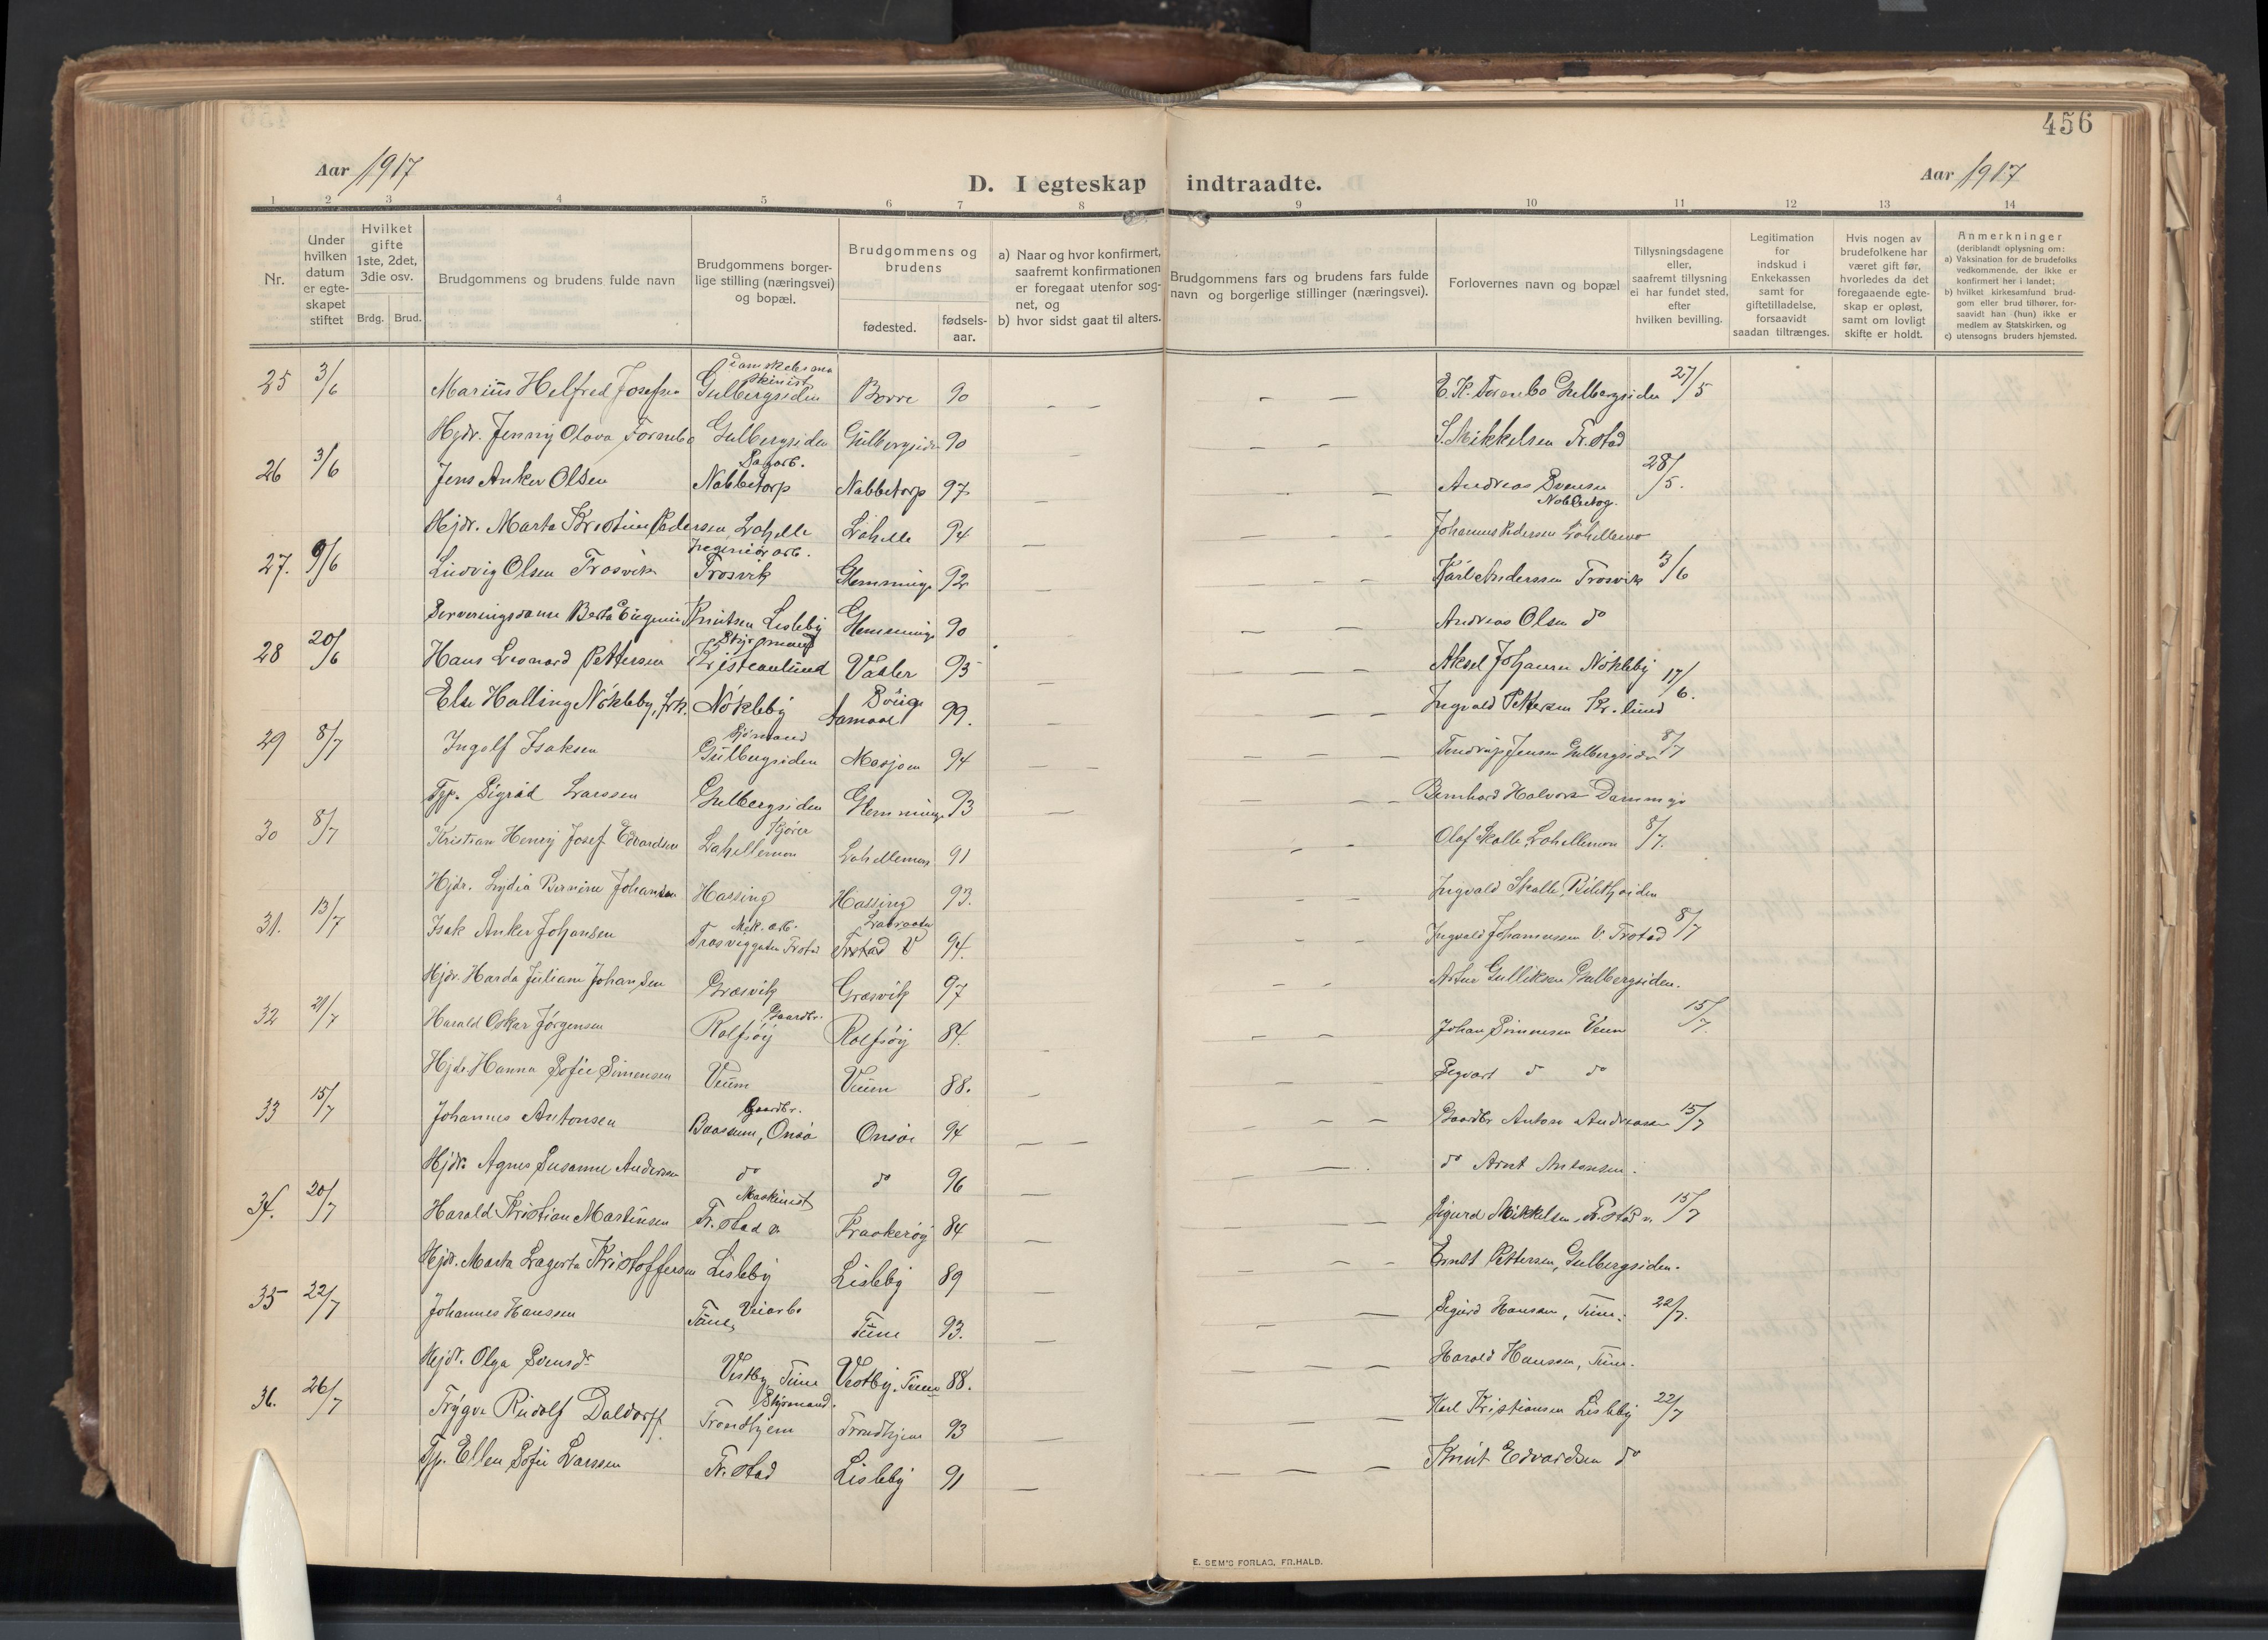 456
Aar 1917
D. I egteskap indtraadte.
Aar 1917
1 2 3 4 5 6 7 8 9 10 11 12 13 14
Nr.
Under hvilken datum er egteskapet stiftet
Hvilket gifte 1ste, 2det, 3die osv.
Brdg. Brud.
Brudgommens og brudens fulde navn
Brudgommens borgerlige stilling (næringsvei) og bopæl.
Brudgommens og brudens
fødested. fødselsaar.
a) Naar og hvor konfirmert, saafremt konfirmationen er foregaat utenfor sognet, og
b) hvor sidst gaat til alters.
Brudgommens fars og brudens fars fulde navn og borgerlige stillinger (næringsvei).
Forlovernes navn og bopæl
Tillysningsdagene eller, saafremt tillysning ei har fundet sted, efter hvilken bevilling.
Legitimation for indskud i Enkekassen samt for giftetilladelse, forsaavidt saadan tiltrænges.
Hvis nogen av brudefolkene har været gift før, hvorledes da det foregaaende egteskap er opløst, samt om lovligt skifte er holdt.
Anmerkninger
(deriblandt oplysning om:
a) Vaksination for de brudefolks vedkommende, der ikke er konfirmert her i landet;
b) hvilket kirkesamfund brudgom eller brud tilhører, forsaavidt han (hun) ikke er medlem av Statskirken, og
c) utensogns bruders hjemsted.
25 3/6 Marius Helfred Josefsen Gulbergsiden Borre 90 E. K. Fornebo Gulbergsiden 27/5
Hjdr. Jenny Olava Fornebo Gulbergsiden Gulbergsiden 90 S. Mikkelsen Fr.stad
26 3/6 Jens Anker Olsen Sagarb. Nabbetorp Nabbetorp 97 Andreas Svensen Nabbetorp 28/5.
Hjdr. Marta Kristine Pedersen, Lahelle Lahelle 94 Johannes Pedersen Lahellemo
27. 9/6 Ludvig Olsen Trosvik Trosvik Glemminge 92 Karl Anderssen Trosvik 3/6
Serveringsdame Berta Eugenie Knutsen Lisleby Glemminge 90 Andreas Olsen do
28 20/6 Hans Leonard Pettersen Styrmand Kristianlund Vaaler 93 Aksel Johansen Nökleby 17/6.
Else Halling Nökleby, frk. Nökleby Aamaal 99. Ingvald Pettersen Kr. lund
29 8/7 Ingolf Isaksen Sjömand Gulbergsiden Mosjøen 94 Jensen Gulbergsiden 8/7
Tjp. Sigrid Larssen Gulbergsiden Glemminge 93 Bernhard Halvors
30 8/7 Kristian Henry Josef Edvardsen Kjører Lahellemoen Lahellemoen 91 Olaf Skolle, Lahellemoen 8/7.
Hjdr. Lydia Bernine Johansen Hassing Hassing 93. Ingvald Skolle,
31. 13/7 Isak Anker Johansen Mek. arb. Trosviggaten Frstad Frstad V 94. Ingvald Johannessen V. Frstad 8/7
Hjdr. Harda Juliane Johansen Græsvik Græsvik 97 Artur Gulliksen Gulbergsiden.
32 21/7 Harald Oskar Jørgensen Gaardbr. Rolfsöy Rolfsöy 84. Johan Simensen Veum 15/7.
Hjdr Hanna Sofie Simensen Veum Veum 88. Sigvart do do
33 15/7 Johannes Antonsen Gaardbr. Onsö Onsöi 94 Gaardbr Anton Andreassen 15/7
Hjdr. Agnes Susanne Andersen do do 96 do Arnt Antonsen.
34. 20/7 Harald Kristian Martinsen Maskinist Fr.stad v. Kraakeröy 84 Sigurd Mikkelsen, Fr.stad v. 15/7
Hjdr. Marta Lagerta Kristoffersen Lisleby Lisleby 89 Ernst Pettersen, Gulbergsiden.
35 22/7 Johannes Hanssen Veiarb. Tune Tune 93. Sigurd Hansen, Tune. 22/7.
Hjdr. Olga Svensdr Vestby Tune Vestby, Tune 88. Harald Hanssen, Tune.
36. 26/7 Trygve Rudolf Daldorff Styrmand. Trondhjem Trondhjem 93 Karl Kristiansen Lisleby 22/7
Tjp. Ellen Sofie Larssen Fr.stad Lisleby 91 Knut Edvardsen do
E. SEM'S FORLAG, FR.HALD.